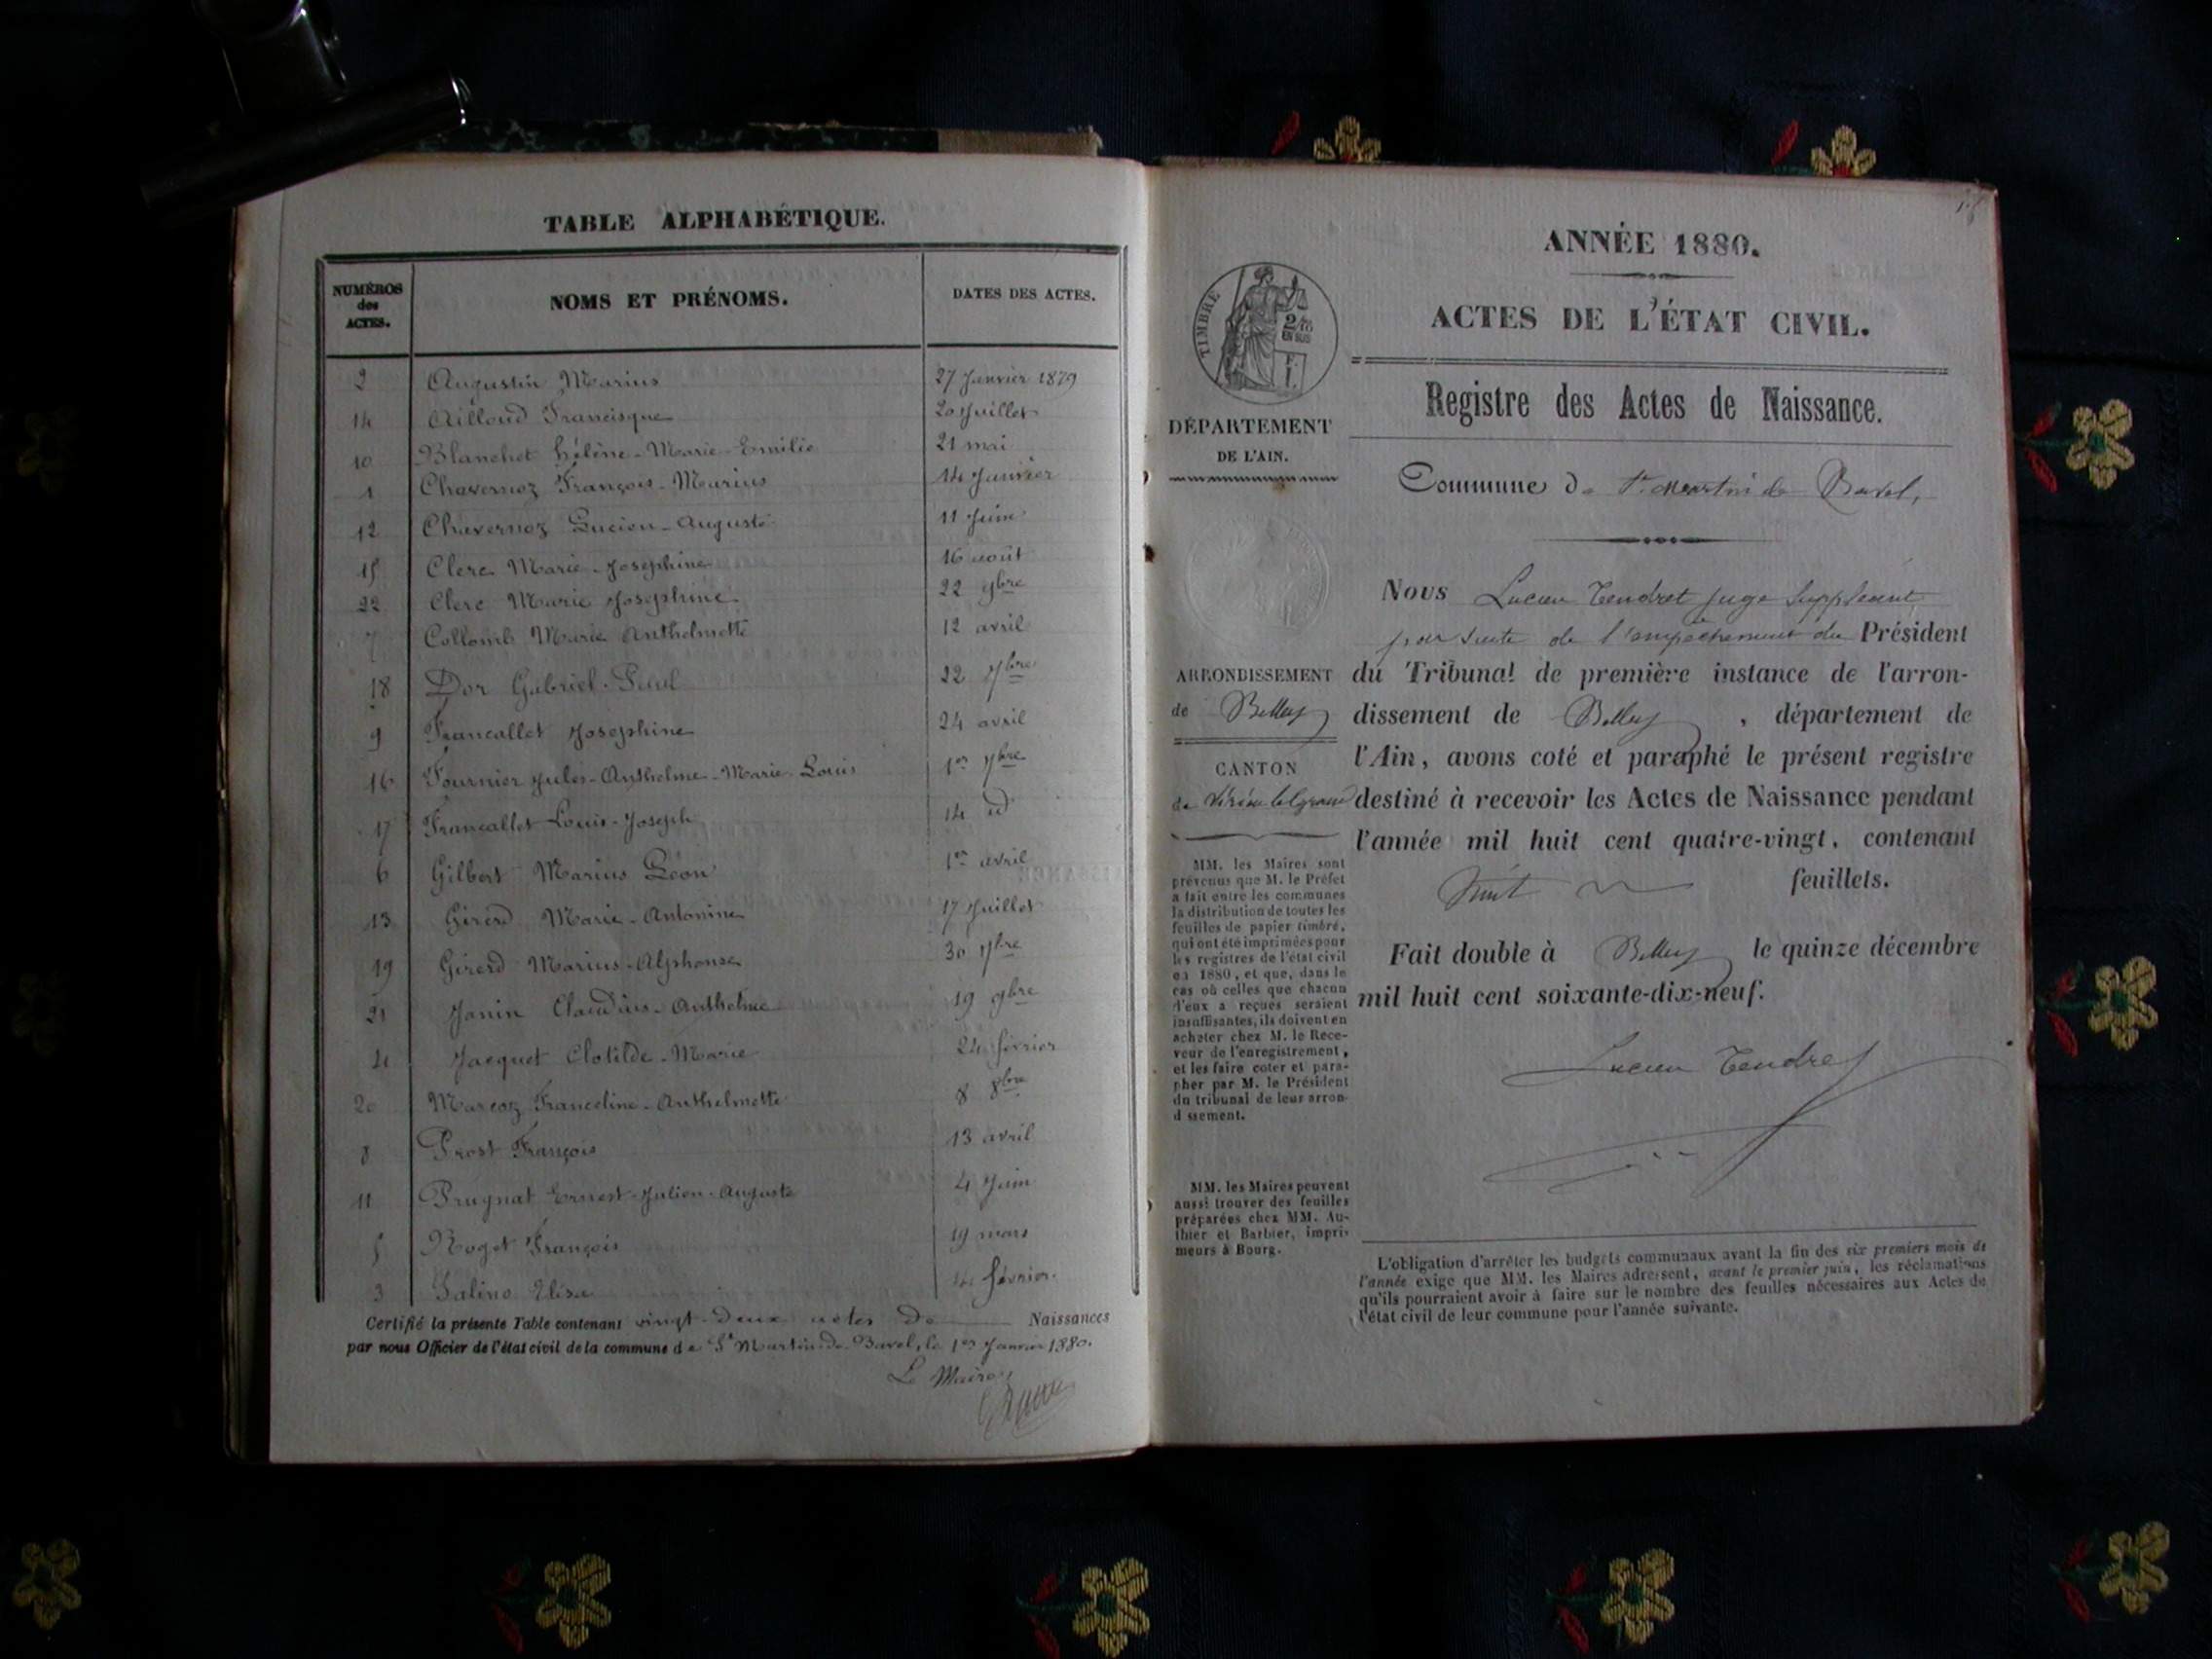 TABLE ALPHABÉTIQUE.
NUMÉROS des ACTES. NOMS ET PRÉNOMS. DATES DES ACTES.
2 Augustin Marius 27 Janvier 1879
14 Ailloud Francisque 20 Juillet
10 Blanchet Hélène-Marie-Emilie 21 mai
1 Chavernoz François-Marius 14 Janvier
12 Chavernoz Lucien-Auguste 11 Juin
15 Clerc Marie-Josephine 16 août
22 Clerc Marie Josephine 22 9bre
7 Collomb Marie Anthelmette 12 avril
18 Dor Gabriel-Paul 22 7bre
9 Francallet Josephine 24 avril
16 Fournier Jules-Anthelme-Marie-Louis 1er 7bre
17 Francallet Louis-Joseph 14 id
6 Gilbert Marius Léon 1er avril
13 Girerd Marie-Antonine 17 Juillet
19 Girerd Marius-Alphonse 30 7bre
21 Janin Claudius-Anthelme 19 9bre
4 Jacquet Clotilde-Marie 24 février
20 Marcoz Franceline-Anthelmette 8 8bre
8 Prost François 13 avril
11 Prugnat Ernest-Julien-Auguste 4 Juin
5 Roget François 19 mars
3 Salino Elisa 14 février
Certifié la présente Table contenant vingt-deux actes de Naissances
par nous Officier de l'état civil de la commune de St Martin-de-Bavel, le 1er Janvier 1880.
Le Maire,
ANNÉE 1880.
ACTES DE L'ÉTAT CIVIL.
Registre des Actes de Naissance.
TIMBRE
2/10
EN SUS
DÉPARTEMENT
DE L'AIN.
Commune de St Martin de Bavel,
Nous Lucien Tendret juge Suppléant
par suite de l'empêchement du Président
du Tribunal de première instance de l'arron-
dissement de Belley, département de
l'Ain, avons coté et paraphé le présent registre
destiné à recevoir les Actes de Naissance pendant
l'année mil huit cent quatre-vingt, contenant
huit feuillets.
Fait double à Belley le quinze décembre
mil huit cent soixante-dix-neuf.
Lucien Tendret
ARRONDISSEMENT
de Belley
CANTON
de Virieu le grand
MM. les Maires sont
prévenus que M. le Préfet
a fait entre les communes
la distribution de toutes les
feuilles de papier timbré,
qui ont été imprimées pour
les registres de l'état civil
en 1880, et que, dans le
cas où celles que chacun
d'eux a reçues seraient
insuffisantes, ils doivent en
acheter chez M. le Rece-
veur de l'enregistrement,
et les faire coter et para-
pher par M. le Président
du tribunal de leur arron-
d ssement.
MM. les Maires peuvent
aussi trouver des feuilles
préparées chez MM. Au-
thier et Barbier, impri-
meurs à Bourg.
L'obligation d'arrêter les budgets communaux avant la fin des six premiers mois de
l'année exige que MM. les Maires adressent, avant le premier juin, les réclamations
qu'ils pourraient avoir à faire sur le nombre des feuilles nécessaires aux Actes de
l'état civil de leur commune pour l'année suivante.